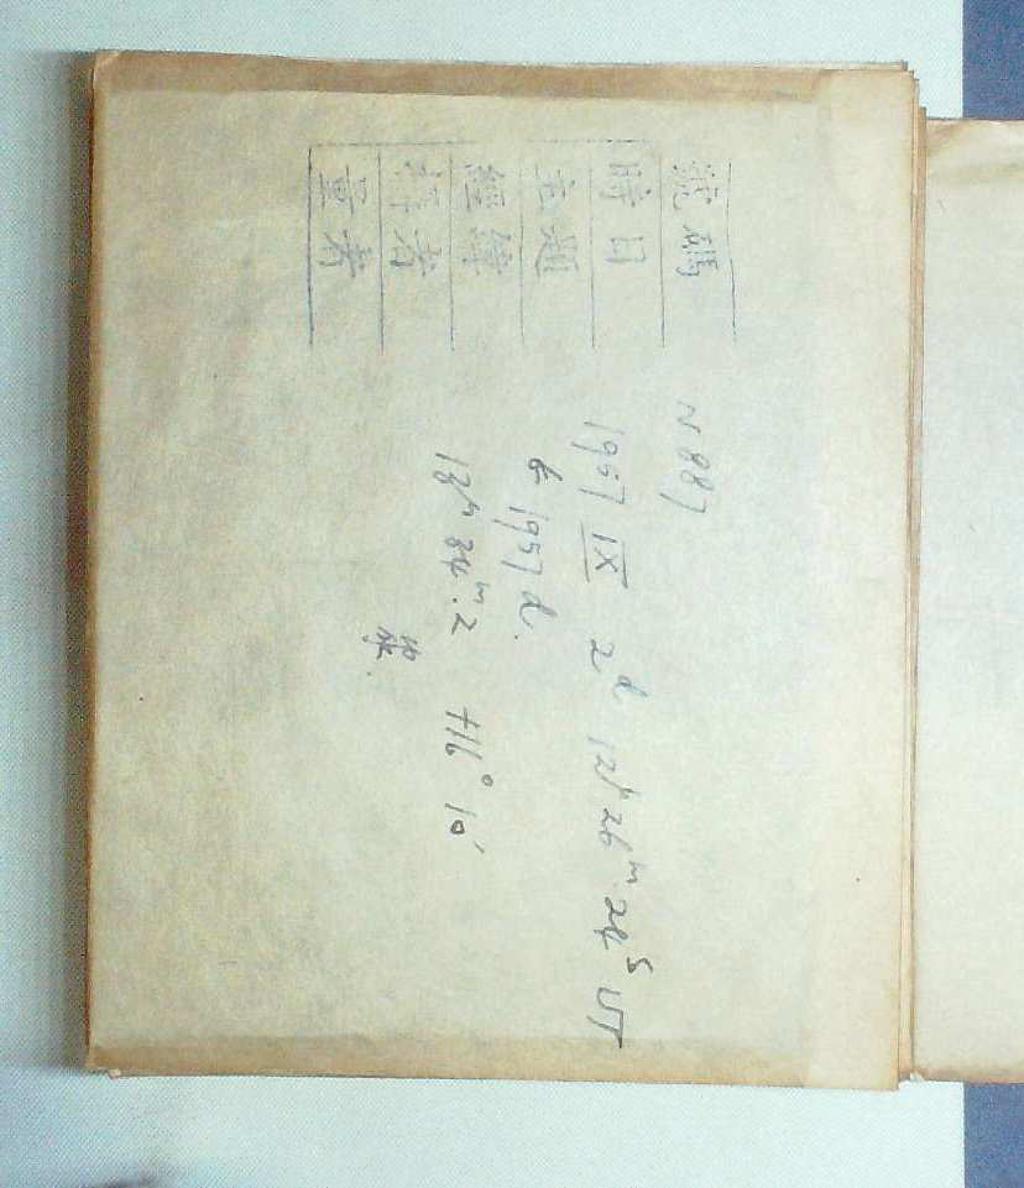 號碼 N 887
時日 1957 IX 2ᵈ 12ʰ 26ᵐ 24ˢ UT
主題 1957 d.
經緯 13ʰ 34ᵐ.2 +16° 10′
者
量者